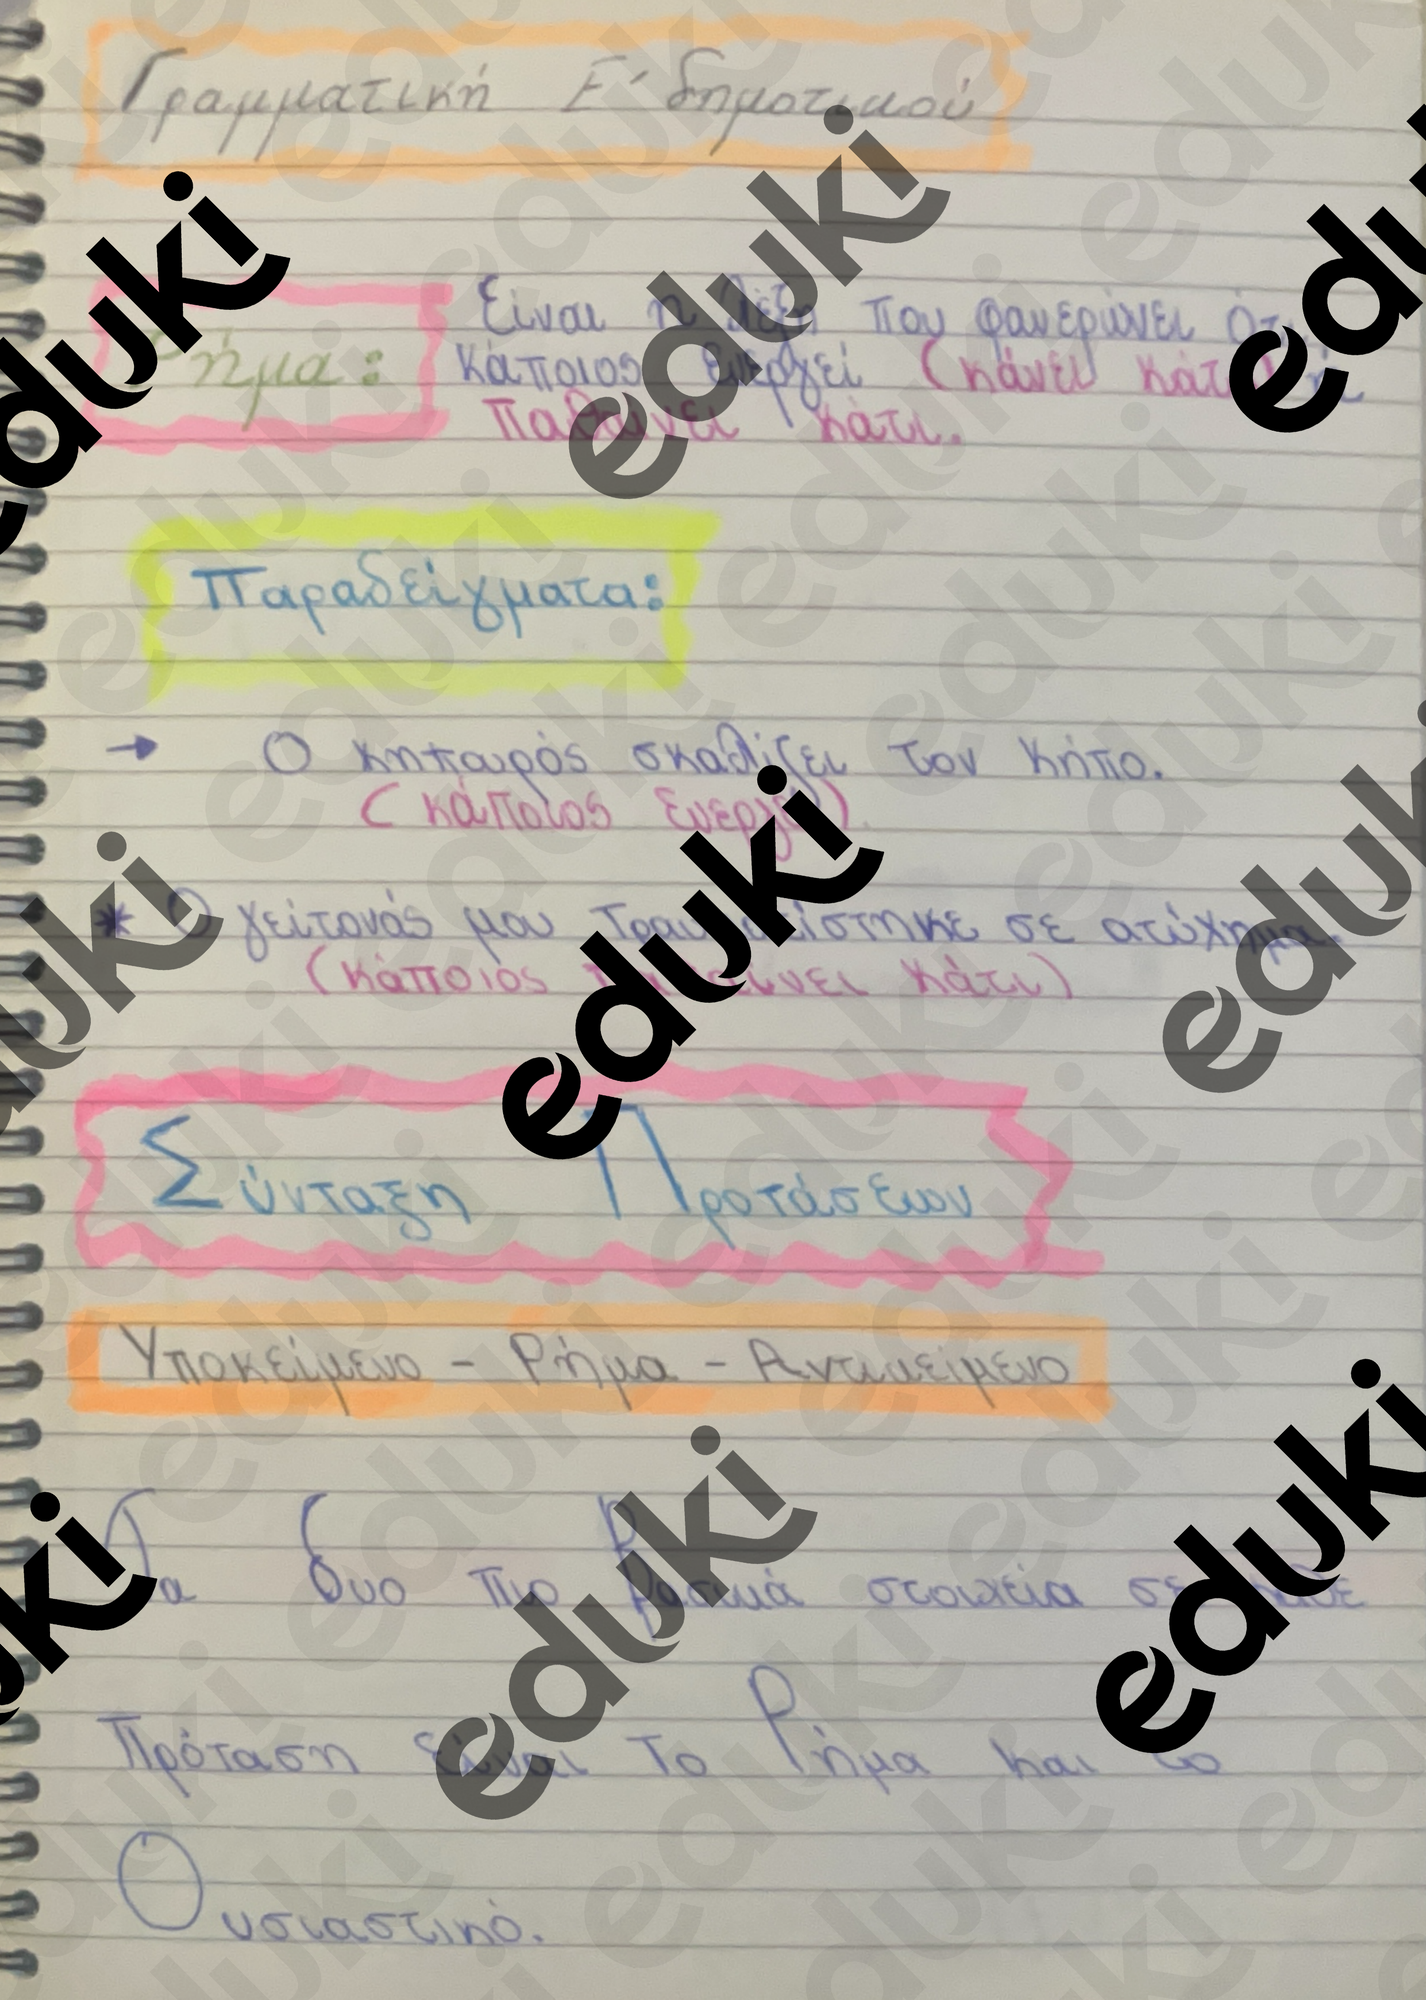 Γραμματική Ε΄ δημοτικού
Ρήμα:
Είναι η λέξη που φανερώνει ότι
κάποιος ενεργεί (κάνει κάτι) ή
παθαίνει κάτι.
Παραδείγματα:
→ Ο κηπουρός σκαλίζει τον κήπο.
(κάποιος ενεργεί)
* Ο γείτονάς μου τραυματίστηκε σε ατύχημα.
(κάποιος παθαίνει κάτι)
Σύνταξη Προτάσεων
Υποκείμενο - Ρήμα - Αντικείμενο
Τα δυο πιο βασικά στοιχεία σε κάθε
Πρόταση είναι το Ρήμα και το
Ουσιαστικό.
eduki